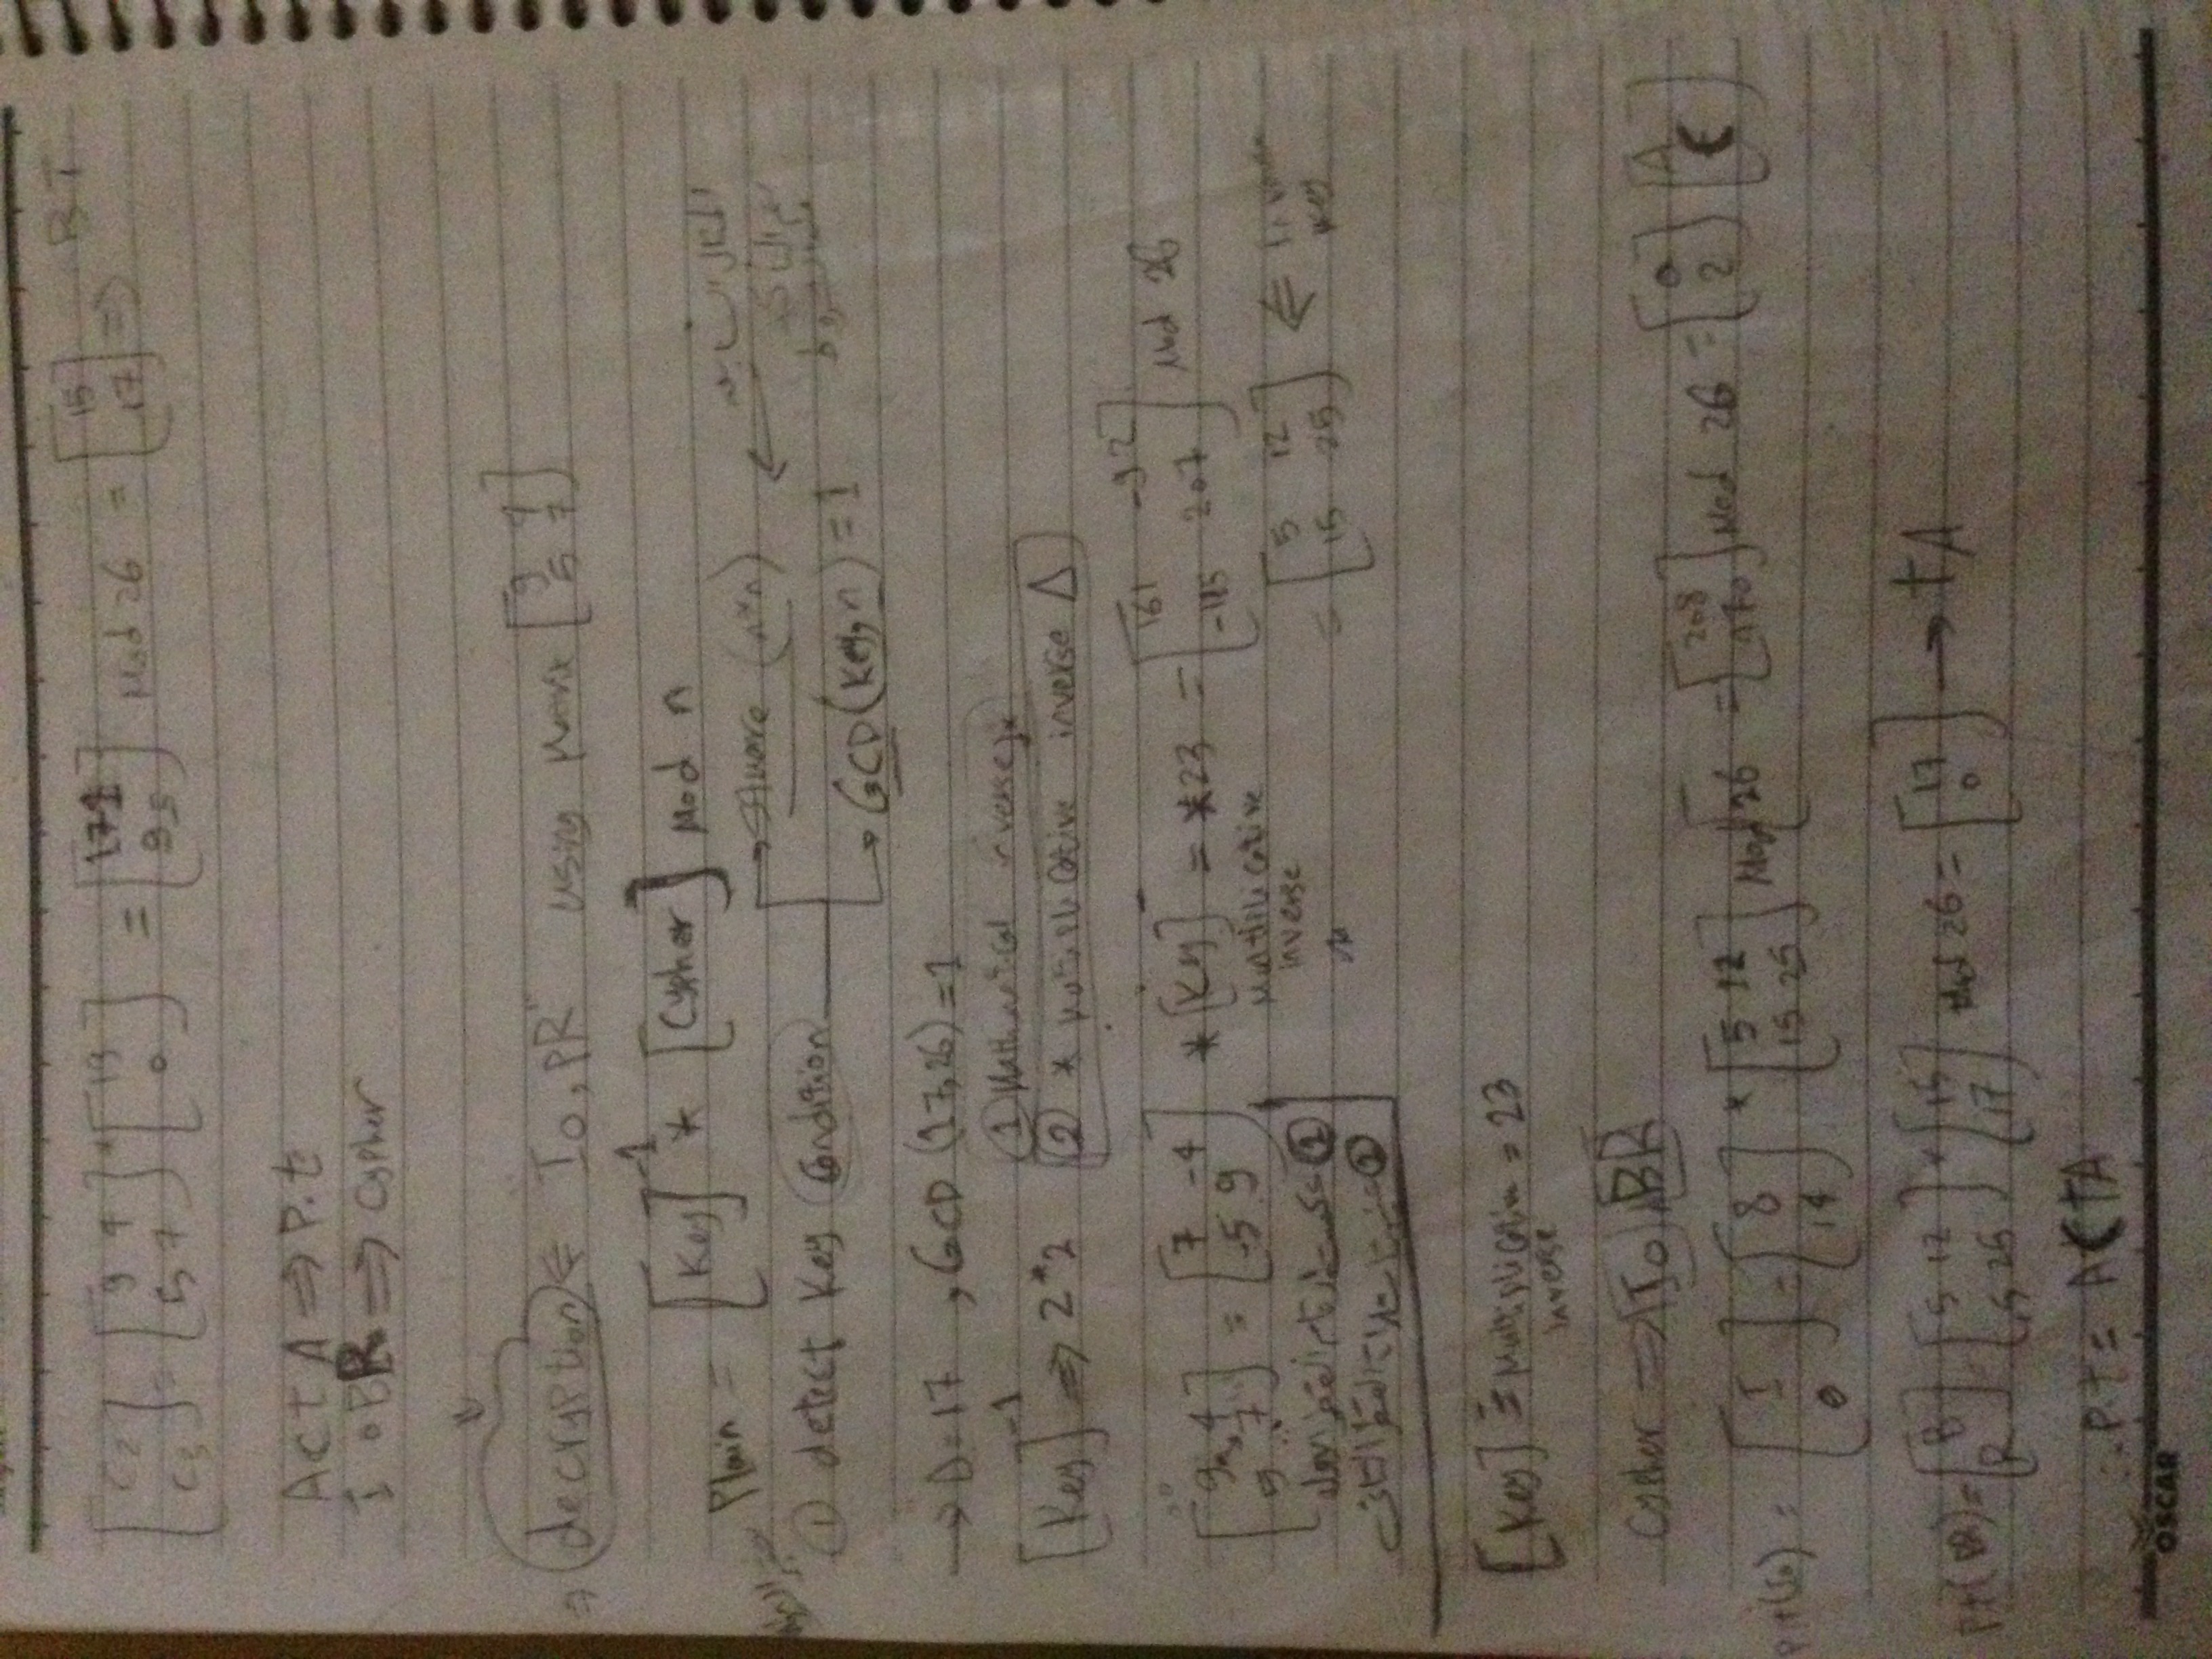 [C2 C3] = [9 4 5 7] * [19 0] = [171 95] Mod 26 = [15 17] ⇒
ActA ⇒ P.t
I o B R ⇒ Cypher
⇒ decryption ⇐ "Io, PR" using Matrix [9 4 5 7]
Plain = [Key]^-1 * [Cypher] Mod n
① detect Key Condition → Square (n*n)
→ GCD (Key, n) = 1
→ D = 17 , GCD (17,26) = 1
① Mathmatical inverse
[Key]^-1 ⇒ 2*2 ② * Multiplicative inverse Δ
[9 4 5 7] = [7 -4 -5 9] * [Key]^- = *23 = [161 -92 -115 207] Mod 26
Multiplicative inverse
= [5 12 15 25] ⇐ key
[Key]^- = Multiplicative inverse = 23
Cypher ⇒ Io, BR
P.t(Io) = [I o] = [8 14] * [5 12 15 25] Mod 26 = [208 470] Mod 26 = [0 2] [A C]
P.t(BR) = [B R] = [5 12 15 25] * [15 17] Mod 26 = [17 0] → tA
∴ P.t = ACtA
OSCAR